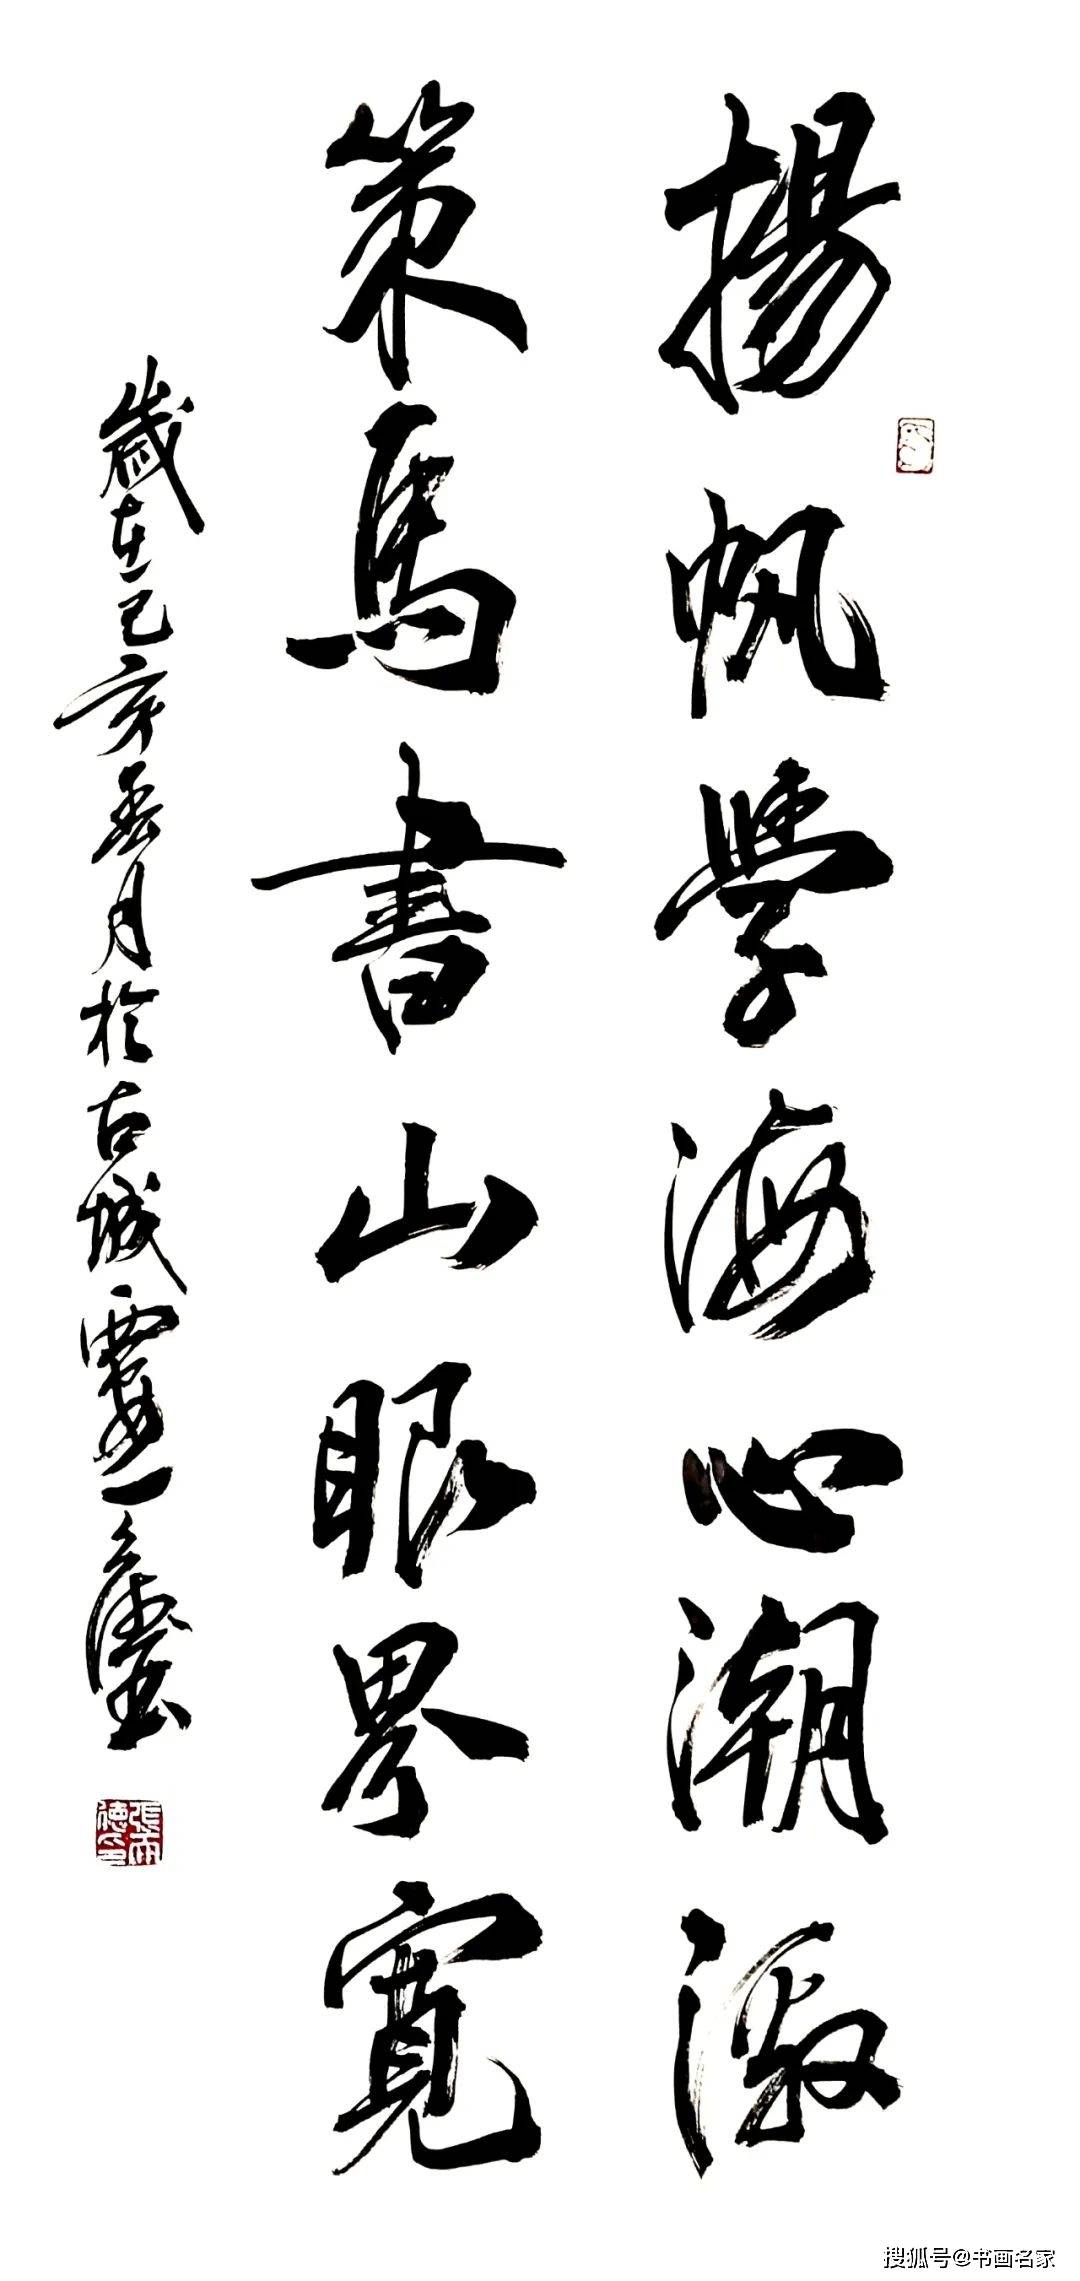 揚帆學海心潮激
策馬書山眼界寬
歲在己亥月於古城
張雨德印
搜狐号@书画名家